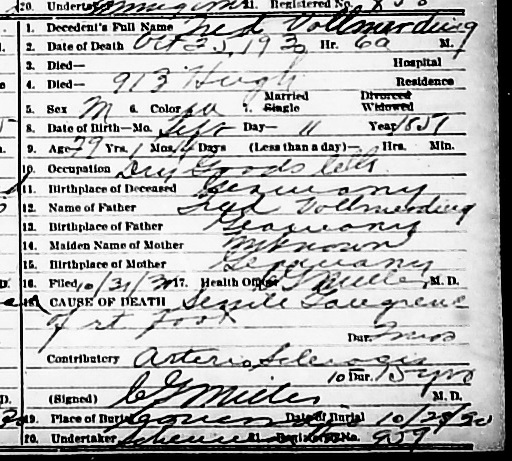 20. Undertaker 21. Registered No. 858
1. Decedent's Full Name Fred Vollmerding
2. Date of Death Oct 25, 1930 Hr. 6a M.
3. Died— Hospital
4. Died— 913 Hugh Residence
5. Sex M 6. Color W 7. Married Single Divorced Widowed
8. Date of Birth—Mo. Sept Day— 11 Year 1851
9. Age 79 Yrs. 1 Mos. 14 Days (Less than a day)— Hrs. Min.
10. Occupation Dry Goods Clk
11. Birthplace of Deceased Germany
12. Name of Father Fred Vollmerding
13. Birthplace of Father Germany
14. Maiden Name of Mother Unknown
15. Birthplace of Mother Germany
16. Filed 10/31/30 17. Health Officer CG Miller M. D.
18. CAUSE OF DEATH Senile Gangrene
of rt foot
Dur. 2 mos
Contributory Arterio Sclerosis
10 Dur. 15 yrs
(Signed) CG Miller M. D.
19. Place of Burial Date of Burial 10/28/30
20. Undertaker 21. Registered No. 859